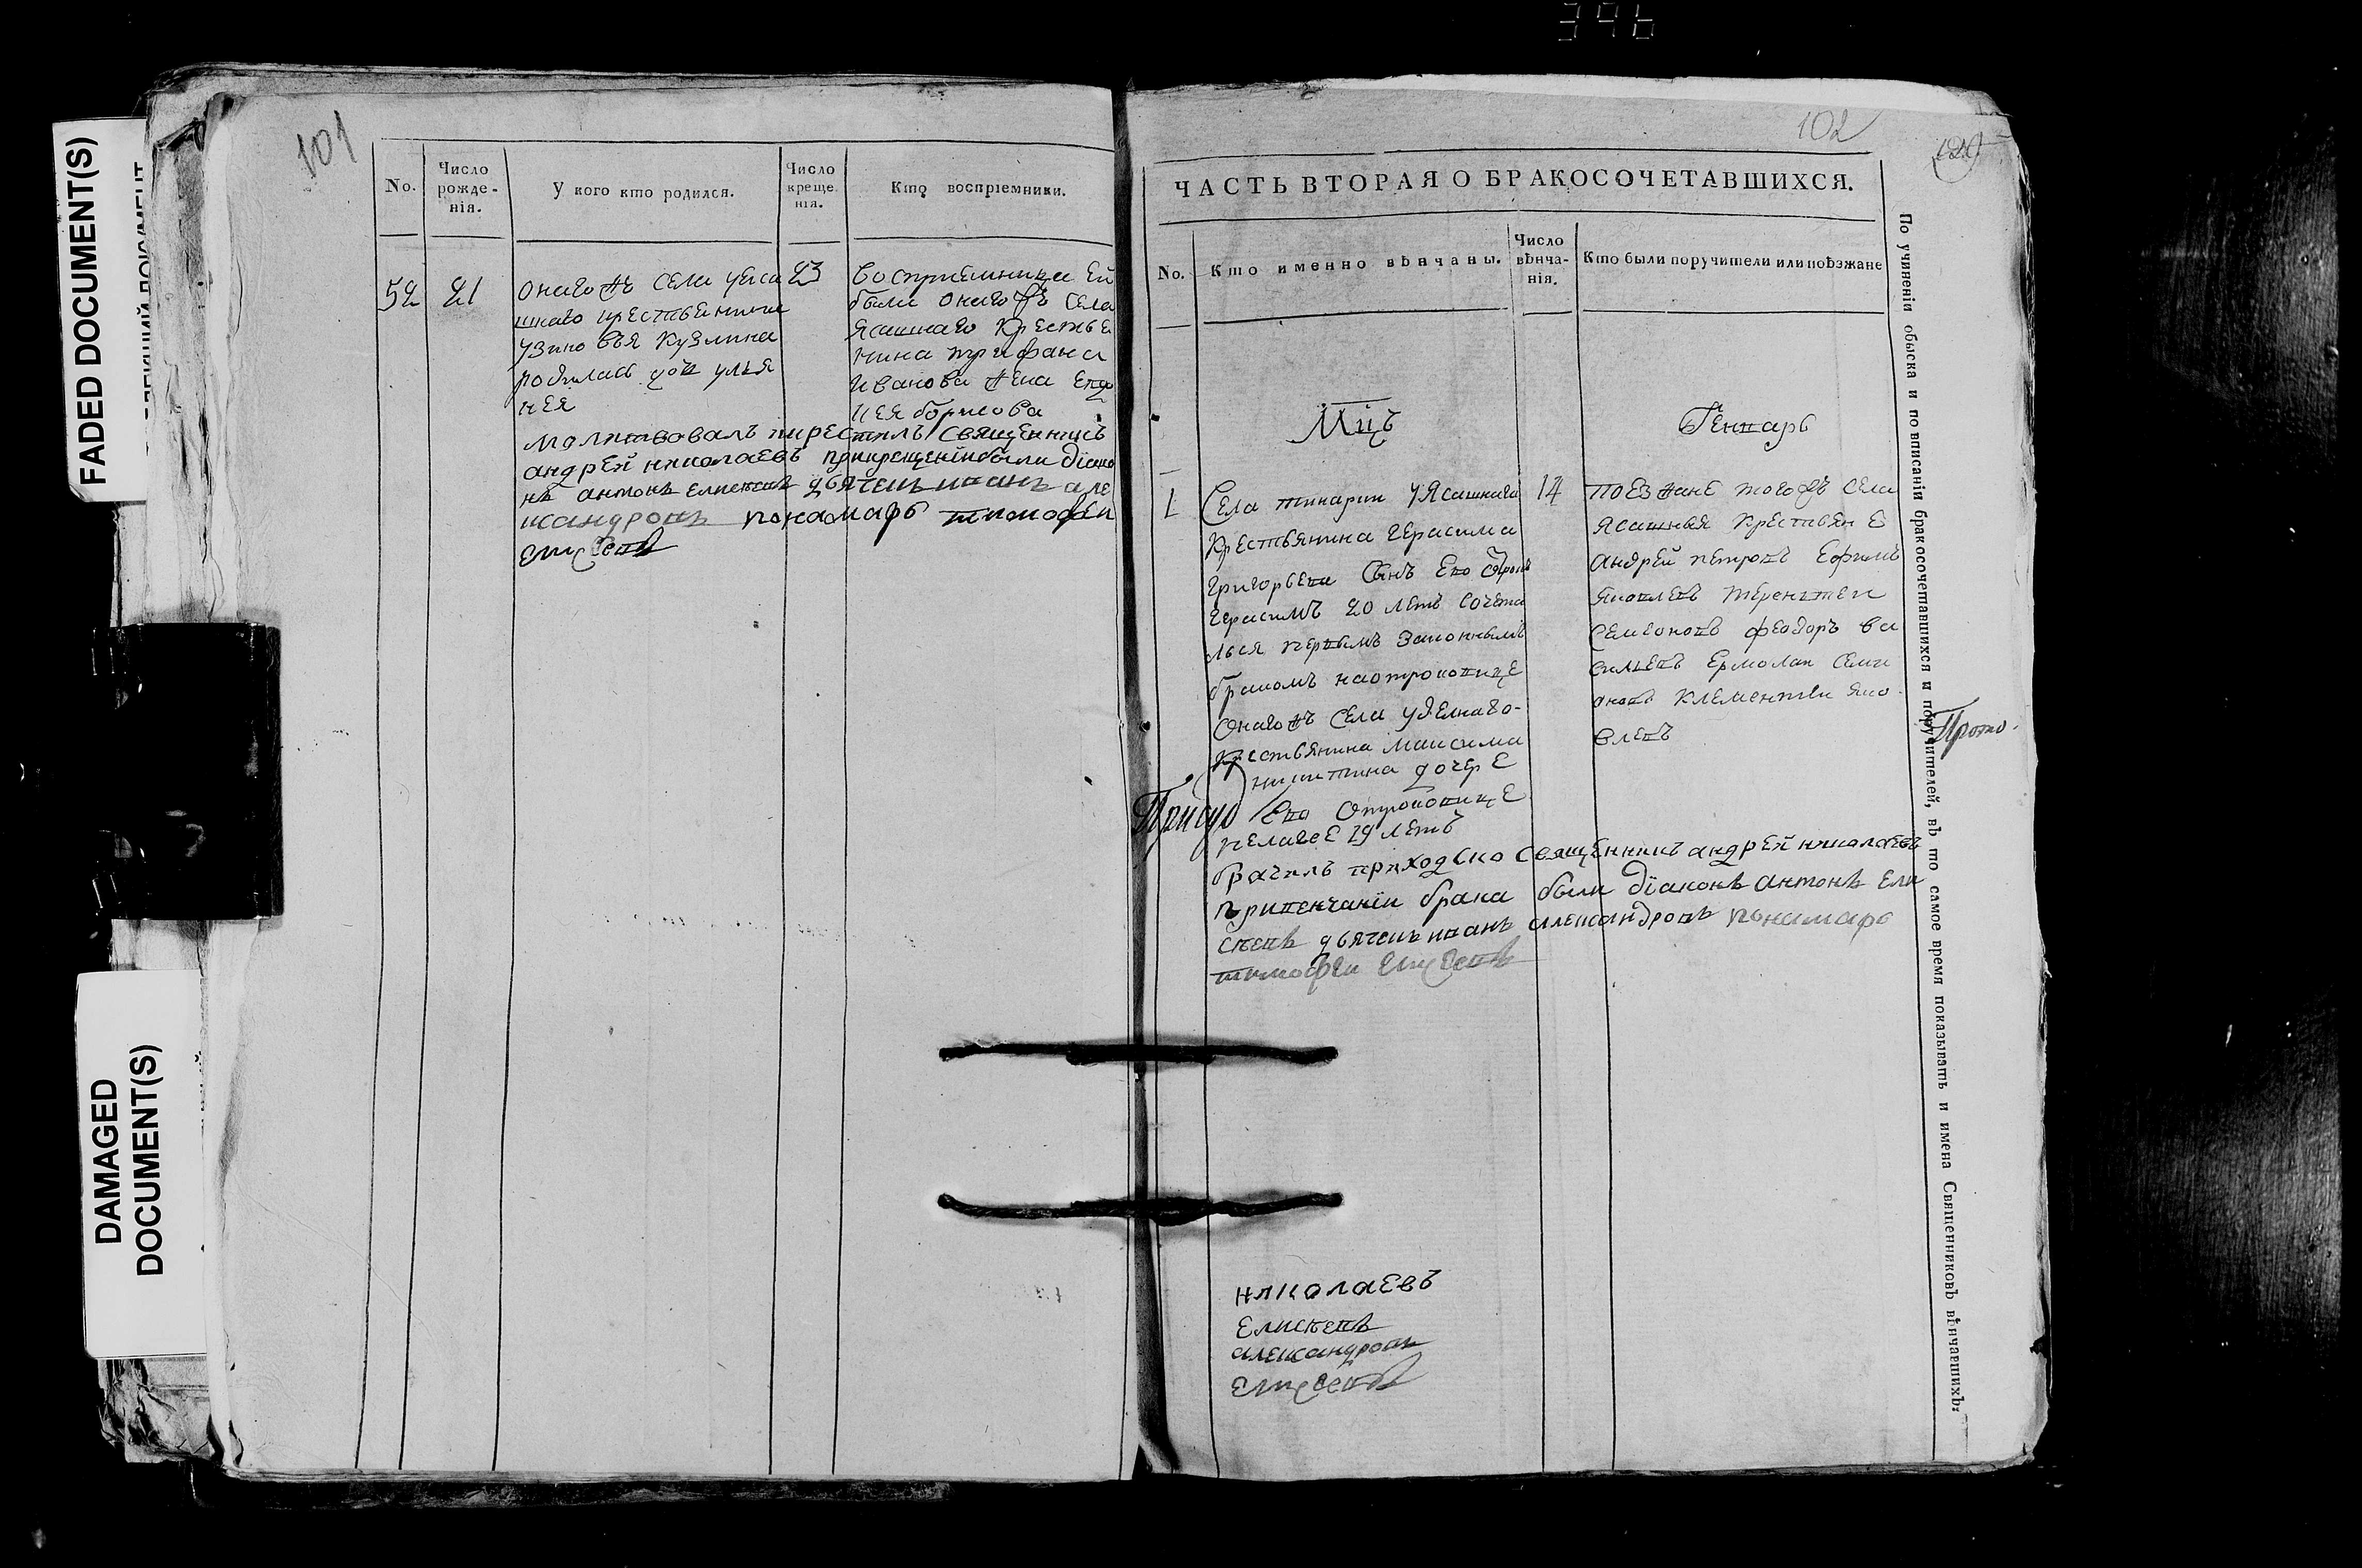 396
FADED DOCUMENT(S)
DAMAGED
DOCUMENT(S)
101
No.
Число
рожде-
нія.
У кого кто родился.
Число
креще.
нія.
Кто воспріемники.
52
21
онагожъ села уяса
шнаго крестьянина
узино въя кузмина
родилась дочь улья
нея
23
Восприемница ей
были онагожъ села
ясашнаго Крестье
нина трифана
Иванова жена евдо
кея борисова
молитвовалъ икрестилъ священникъ
андрей николаевъ прикрещеніи были діако
нъ антонъ елисеевъ дьячекъ иванъ але
ксандровъ понамарь тимофеи
елисеевъ
102
ЧАСТЬ ВТОРАЯ О БРАКОСОЧЕТАВШИХСЯ.
No.
Кто именно вѣнчаны.
Число
вѣнча-
нія.
Кто были поручители или поѣзжане
Мцъ
Генварь
1
Села тинарки уясашнаго
Крестьянина герасима
григорьева сынъ ево отрокъ
герасимъ 20 летъ сочета
лься первымъ законнымъ
бракомъ наотроковице
Онагожъ села уделнаго-
крестьянина максима
никитина дочере
ево отроковице
пелагее 19 летъ
14
поезжане тогожъ села
ясашныя крестьяне
андрей петровъ Ефимъ
яковлевъ терентеи
семионовъ феодоръ ва
сильевъ Ермолаи семи
оновъ клементеи яко
влевъ
Присуд
Прото-
брачилъ приходско священникъ андрей николаевъ
привенчаніи брака были діаконъ антонъ Ели
сеевъ дьячекъ иванъ александровъ понамарь
тимофеи елисеевъ
николаевъ
елисеевъ
александровъ
елисеевъ
По учиненіи обыска и по вписаніи бракосочетавшихся и поручителей, въ то самое время показывать и имена Священниковъ вѣнчавшихъ: